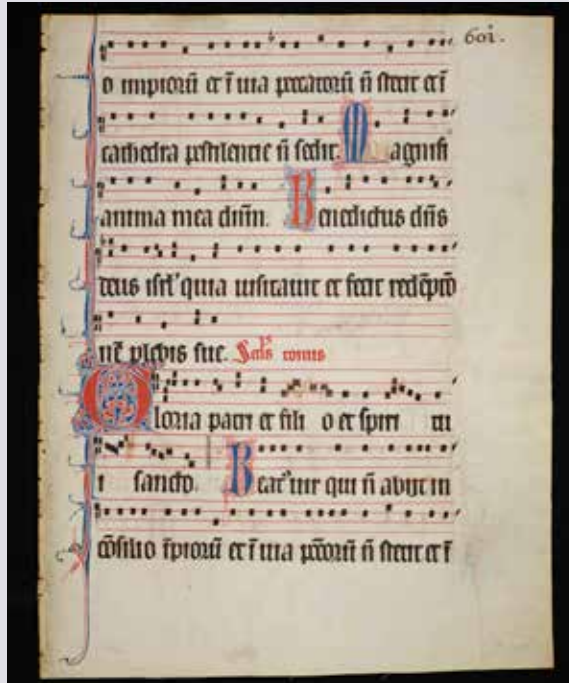 601.
o impiorū et ī uia peccatorū ñ stetit et ī
cathedra pestilencie ñ sedit. Magnifi
anima mea dn̄m. Benedictus dn̄s
deus isrl' quia uisitauit et fecit redēptō
nē plebis sue. tonus
Gloria patri et fili o et spiri tu
i sancto. Beat' uir qui ñ abiit in
cōsilio īpiorū et ī uia pccōrū ñ stetit et ī